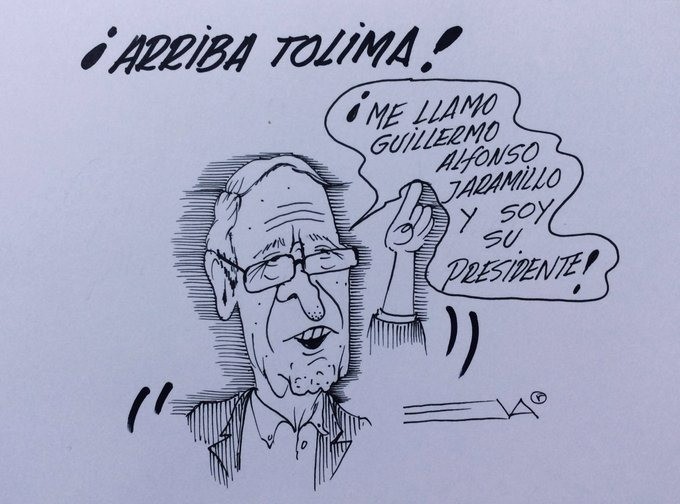 ¡ARRIBA TOLIMA!
¡ME LLAMO
GUILLERMO
ALFONSO
JARAMILLO
Y SOY
SU
PRESIDENTE!